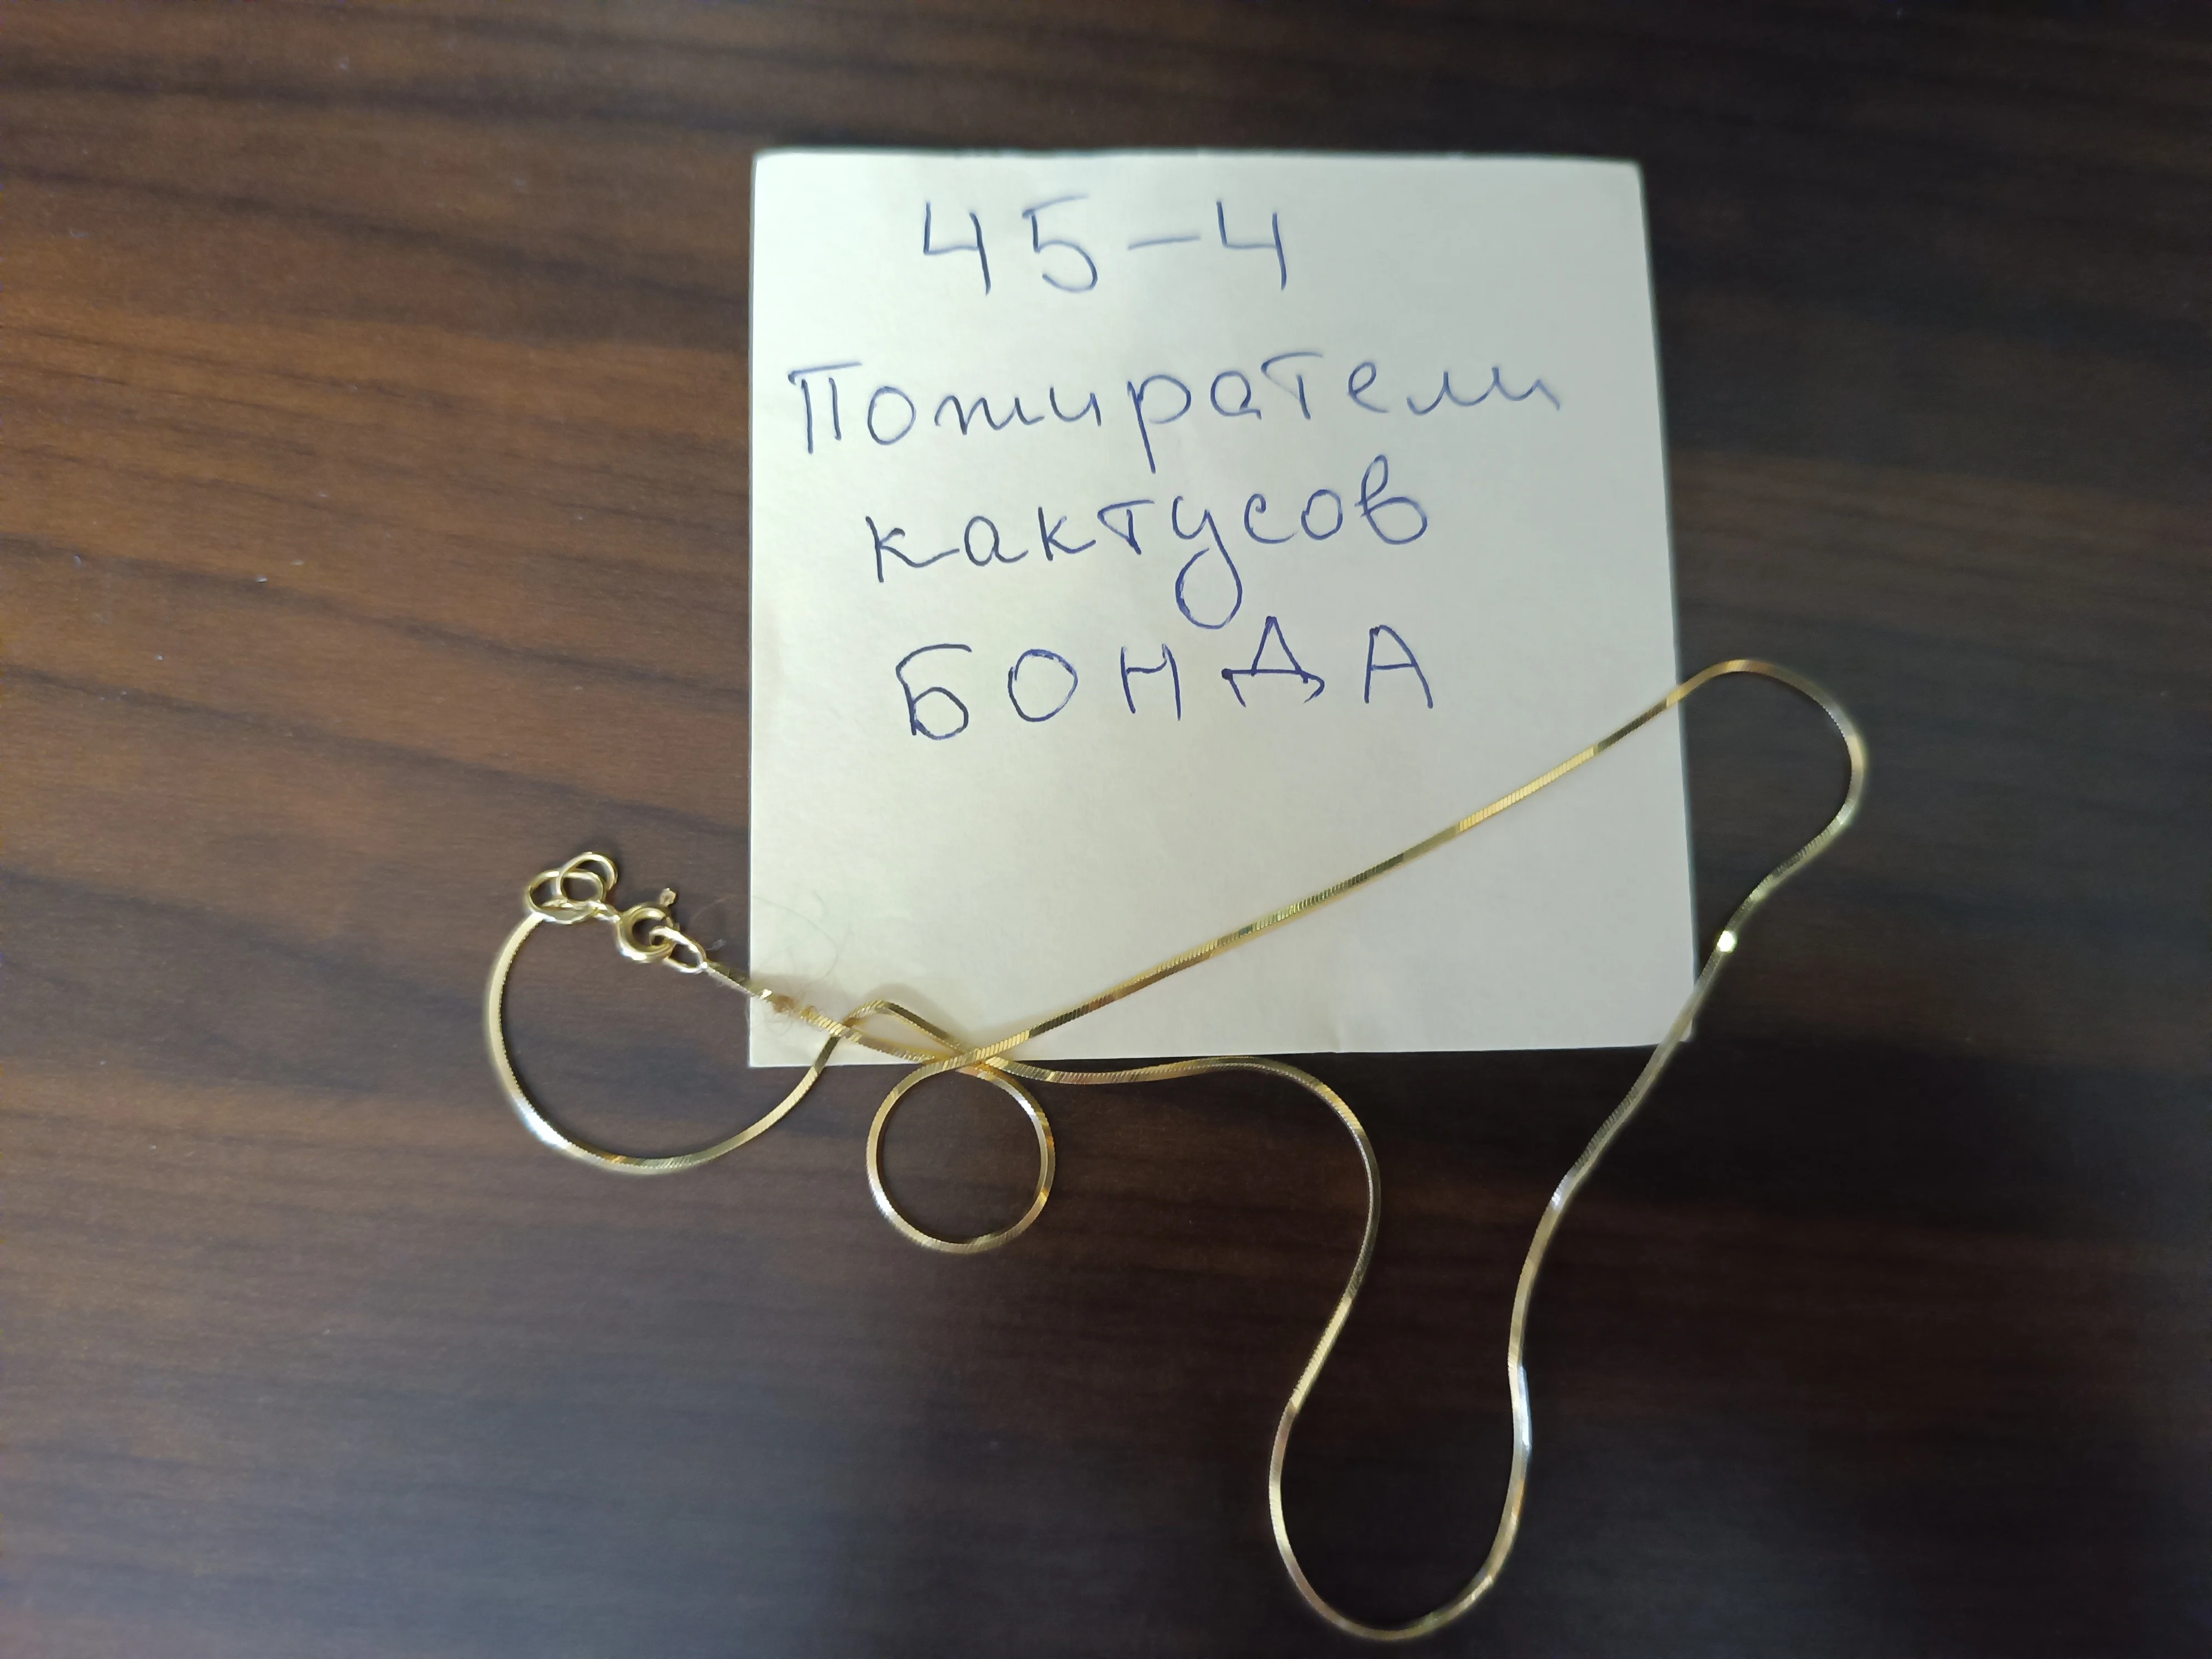 45-4
Пожиратели
кактусов
БОНДА